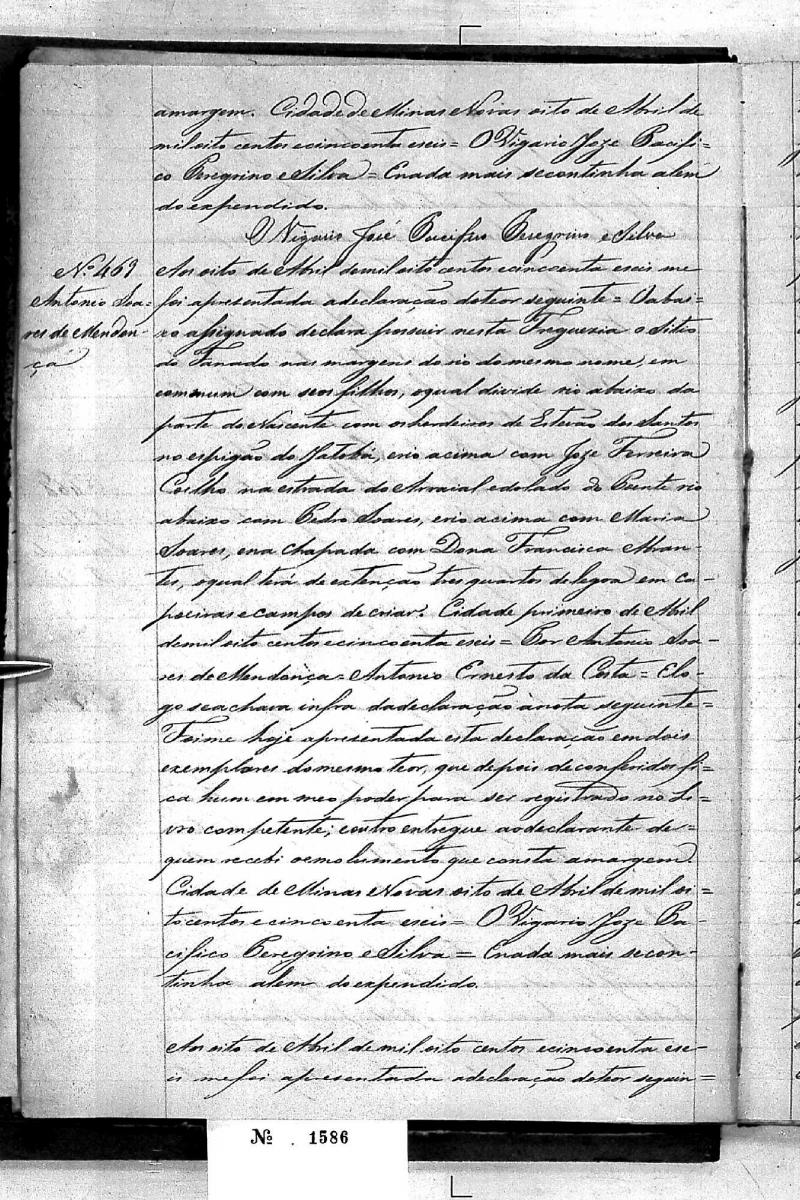 amargem. Cidade de Minas Novas oito de Abril de
mil oito centos e cincoenta eseis = O Vigario Joze Pacifi=
co Peregrino e Silva = Enada mais secontinha alem
do expendido.
O Vigario José Pacifico Peregrino e Silva
Nº 469
Antonio Soa=
res de Mendon=
ça
Aos oito de Abril demil oito centos ecincoenta eseis me
foi apresentada adeclaração doteor seguinte = Oabai=
xo assignado declara possuir nesta Freguezia o Sitio
do Fanado nas margens do rio do mesmo nome, em
commum com seos filhos, oqual divide rio abaixo da
parte do Nascente com osherdeiros de Estevão dos Santos
no espigão do Jatobá, erio acima com Joze Ferreira
Coelho na estrada do Arraial edolado do Poente rio
abaixo com Pedro Soares, erio acima com Maria
Soares, ena chapada com Dona Francisca Abran=
tes, oqual terá de extenção tres quartos de legoa em ca=
poeiras e campos de criar. Cidade primeiro de Abril
demil oito centos ecincoenta eseis = Por Antonio Soa=
res de Mendonça = Antonio Ernesto da Costa = Elo=
go seachava infra dadeclaração anota seguinte =
Foime hoje apresentada esta declaração em dois
exemplares domesmo teor, que depois deconferidos fi=
ca hum em meo poder para ser registrado no Li=
vro competente; eoutro entregue aodeclarante de=
quem recebi oemolumento que consta amargem.
Cidade de Minas Novas oito de Abril de mil oi=
tocentos e cincoenta eseis = O Vigario Joze Pa=
cifico Peregrino e Silva = Enada mais secon=
tinha alem do expendido.
Aos oito de Abril de mil oito centos ecincoenta ese=
is mefoi apresentada adeclaração doteor seguin=
Nº 1586